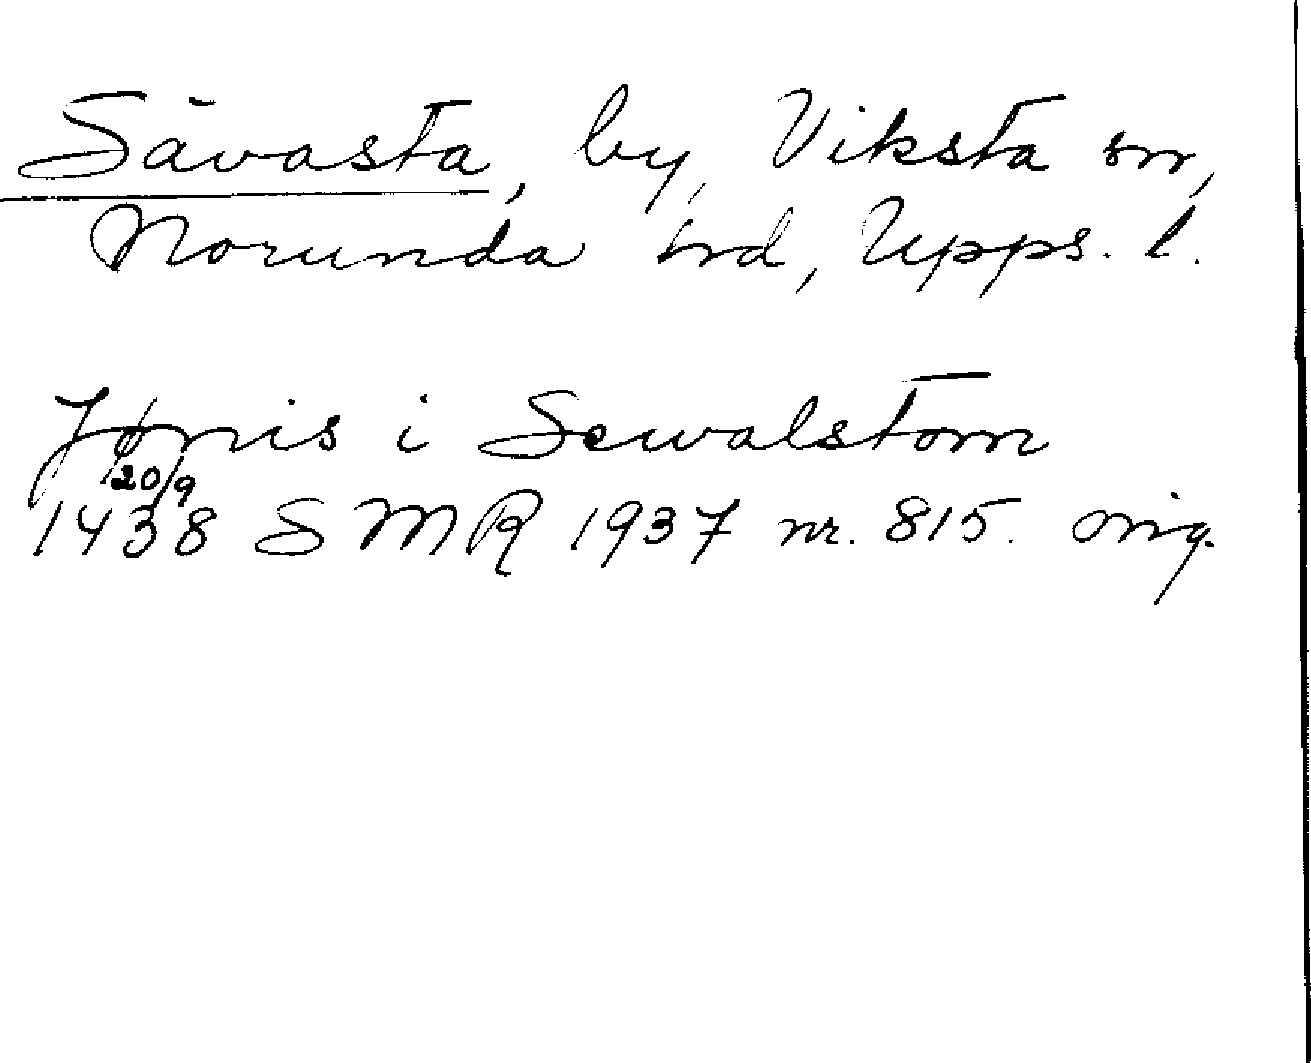 Sävasta, by, Viksta sn,
Norunda hd, Upps. l.
Jønis i Sewalstom
20/9
1438 SMR 1937 nr. 815. orig.